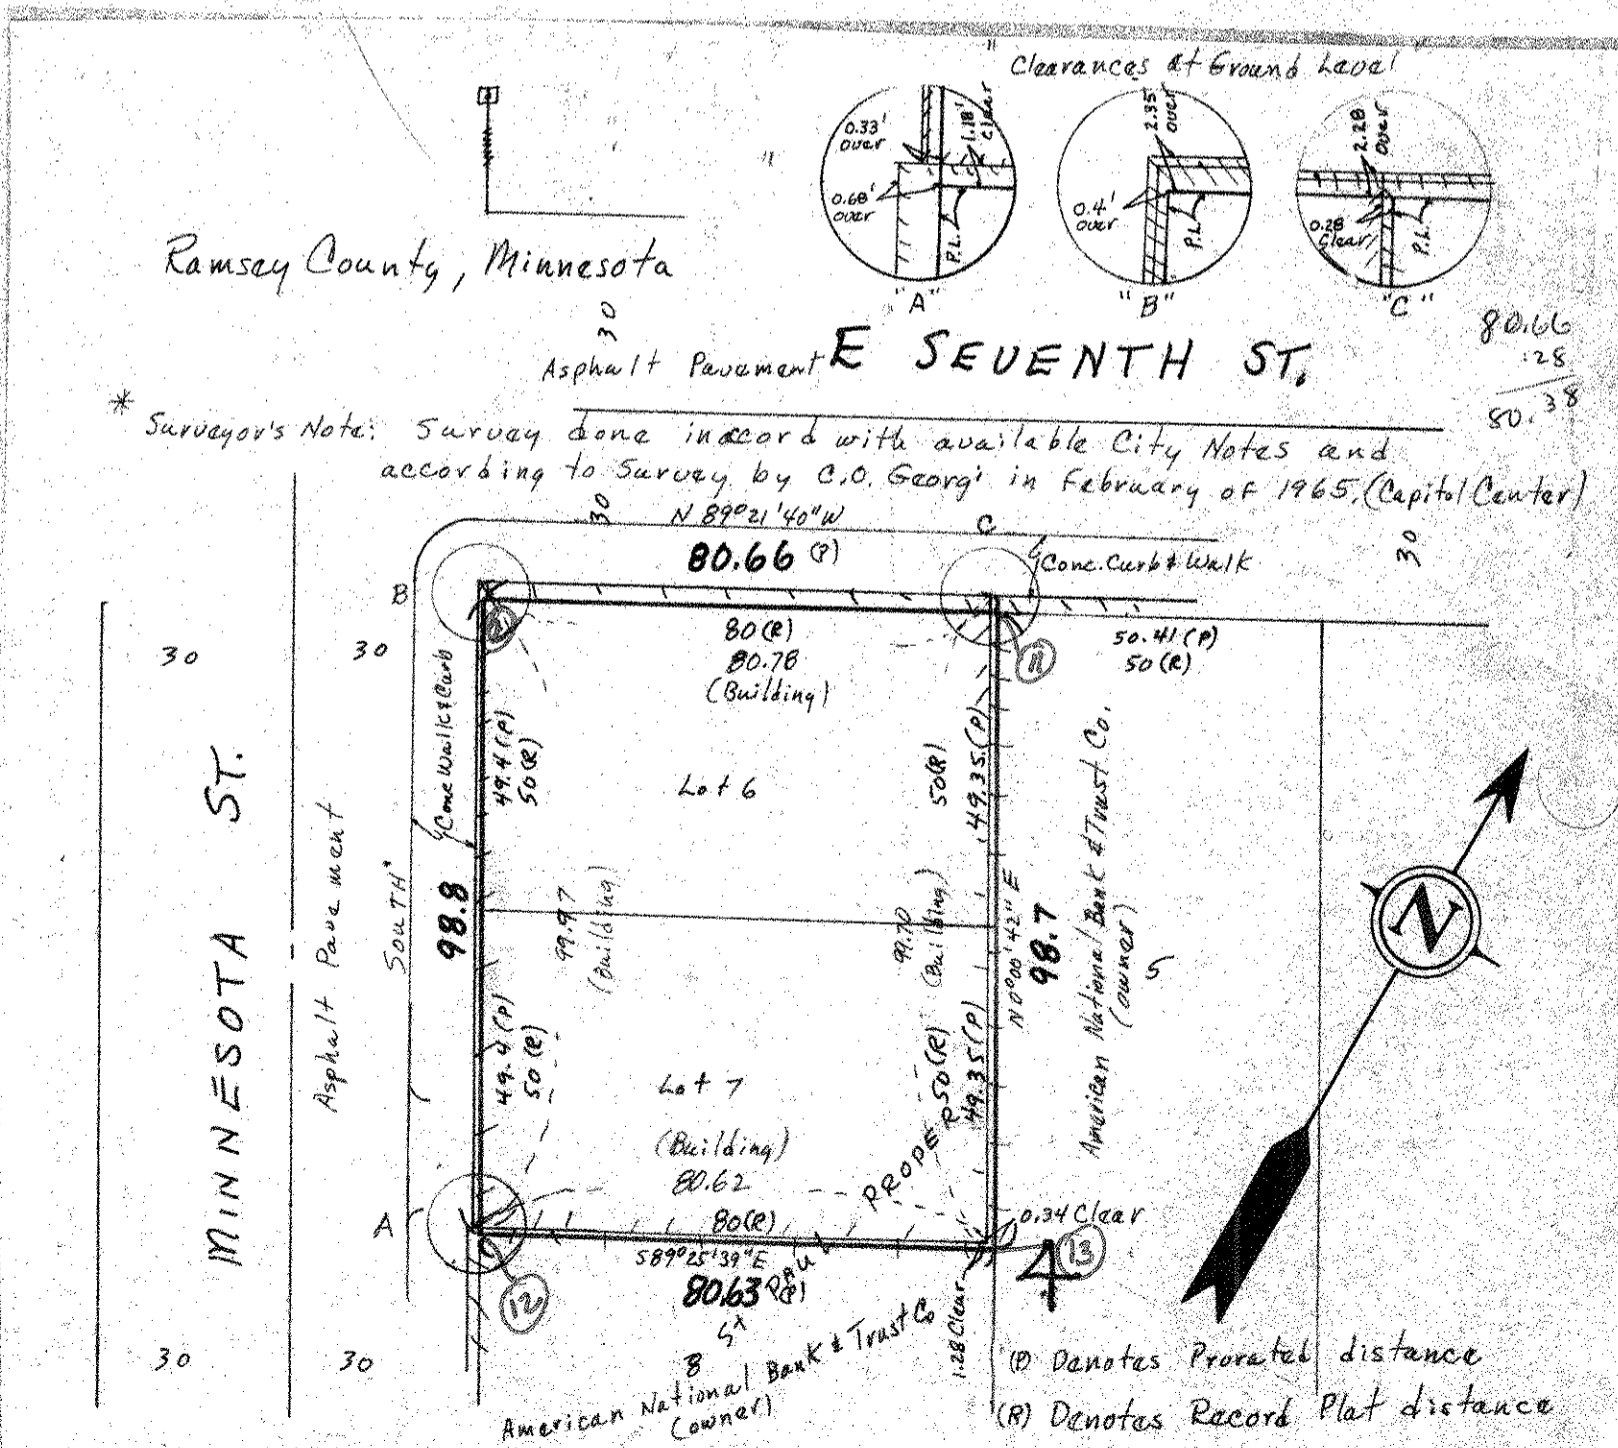 "Clearances at Ground Level
0.33' over
1.18' Clear
0.68' over
P.L.
"A"
2.35' over
0.4' over
P.L.
"B"
2.28 over
0.28 Clear
P.L.
"C"
Ramsey County, Minnesota
30
Asphalt Pavement E SEVENTH ST.
80.66
.28
80.38
* Surveyor's Note: Survey done inaccord with available City Notes and
according to Survey by C.O. Georgi in February of 1965. (Capitol Center)
30
N 89°21'40"W
C
80.66 (P)
Conc. Curb & Walk
30
B
80 (R)
80.78
(Building)
11
50.41 (P)
50 (R)
30
30
Conc Walk & Curb
49.4 (P)
50 (R)
Lot 6
50 (R)
49.35 (P)
MINNESOTA ST.
Asphalt Pavement
SOUTH
98.8
99.97
(Building)
99.70
(Building)
N 0°00'42" E
98.7
American National Bank & Trust Co.
(owner)
5
N
49.4 (P)
50 (R)
Lot 7
50 (R)
49.35 (P)
(Building)
80.62
PROPER
A
80 (R)
0.34 Clear
S 89°25'39" E
80.63 (P)
12
13
4
1.28 Clear
8
American National Bank & Trust Co
(owner)
30
30
(P) Denotes Prorated distance
(R) Denotes Record Plat distance